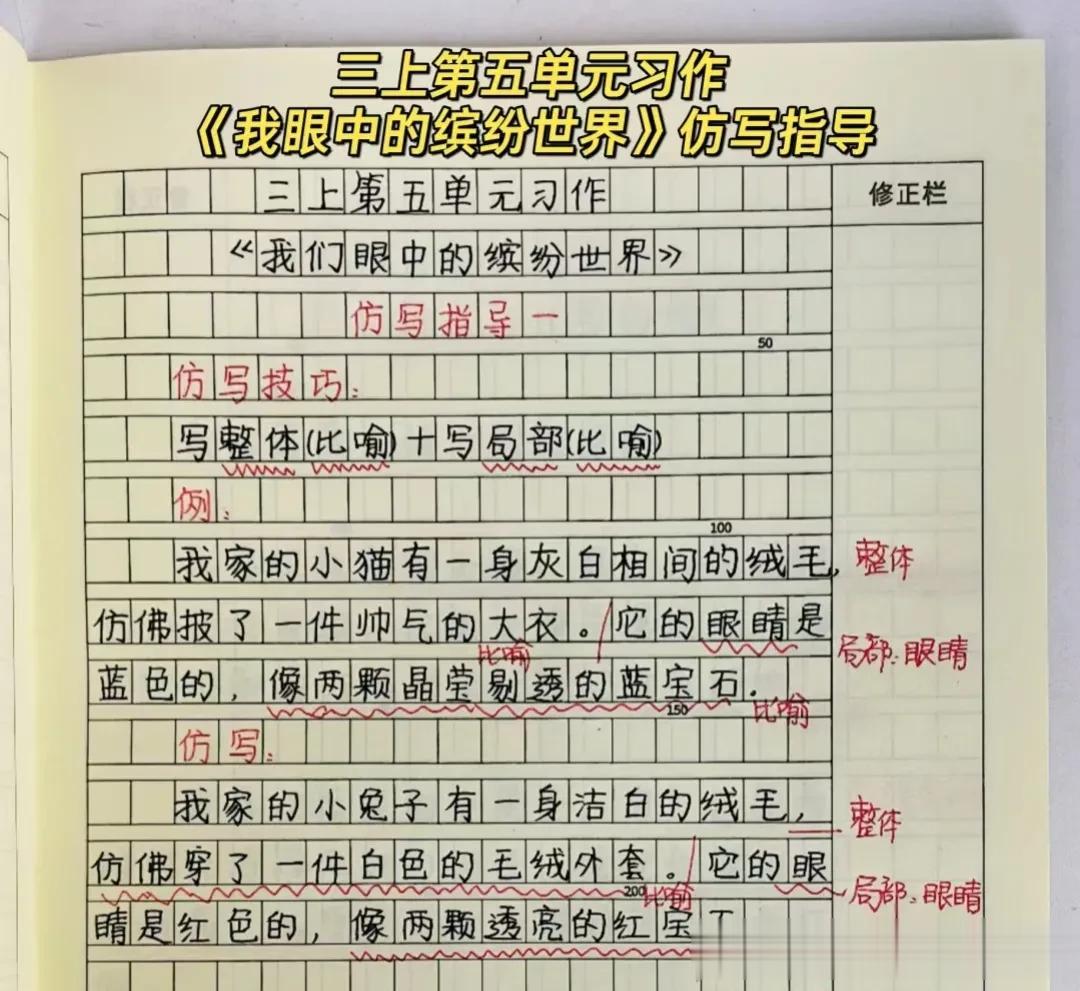 三上第五单元习作
《我眼中的缤纷世界》仿写指导
三上第五单元习作
修正栏
《我们眼中的缤纷世界》
仿写指导一
50
仿写技巧：
写整体(比喻)+写局部(比喻)
例：
100
我家的小猫有一身灰白相间的绒毛，
整体
仿佛披了一件帅气的大衣。它的眼睛是
比喻
局部：眼睛
蓝色的，像两颗晶莹剔透的蓝宝石.
150
比喻
仿写：
我家的小兔子有一身洁白的绒毛，
整体
仿佛穿了一件白色的毛绒外套。它的眼
200
比喻
局部：眼睛
睛是红色的，像两颗透亮的红宝